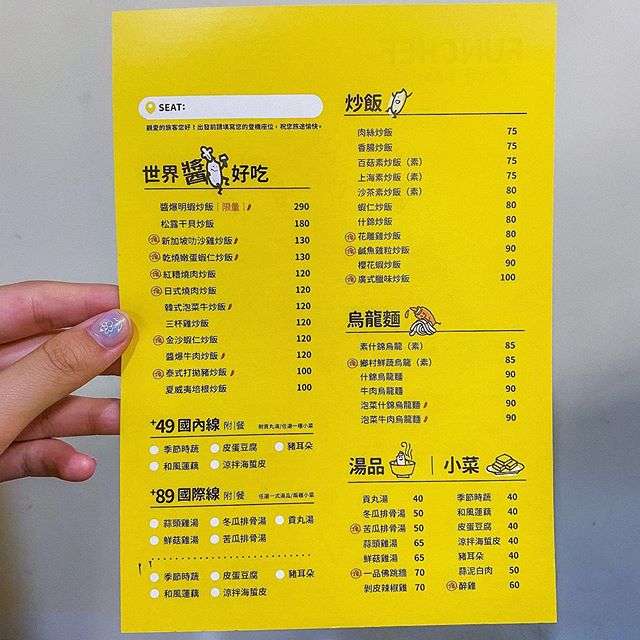 SEAT:
親愛的旅客您好！出發前請填寫您的登機座位，祝您旅途愉快。
世界醬好吃
醬爆明蝦炒飯｜限量｜ 290
松露干貝炒飯 180
新加坡叻沙雞炒飯 130
乾燒嫩蛋蝦仁炒飯 130
紅糟燒肉炒飯 120
日式燒肉炒飯 120
韓式泡菜牛炒飯 120
三杯雞炒飯 120
金沙蝦仁炒飯 120
醬爆牛肉炒飯 120
泰式打拋豬炒飯 100
夏威夷培根炒飯 100
+49 國內線 附|餐 附貢丸湯/任選一種小菜
季節時蔬 皮蛋豆腐 豬耳朵
和風蓮藕 涼拌海蜇皮
+89 國際線 附|餐 任選一式湯品/兩種小菜
蒜頭雞湯 冬瓜排骨湯 貢丸湯
鮮菇雞湯 苦瓜排骨湯
季節時蔬 皮蛋豆腐 豬耳朵
和風蓮藕 涼拌海蜇皮
炒飯
肉絲炒飯 75
香腸炒飯 75
百菇素炒飯（素） 75
上海素炒飯（素） 75
沙茶素炒飯（素） 80
蝦仁炒飯 80
什錦炒飯 80
花雕雞炒飯 80
鹹魚雞粒炒飯 90
櫻花蝦炒飯 90
廣式臘味炒飯 100
烏龍麵
素什錦烏龍（素） 85
鄉村鮮蔬烏龍（素） 85
什錦烏龍麵 90
牛肉烏龍麵 90
泡菜什錦烏龍麵 90
泡菜牛肉烏龍麵 90
湯品
貢丸湯 40
冬瓜排骨湯 50
苦瓜排骨湯 50
蒜頭雞湯 65
鮮菇雞湯 65
一品佛跳牆 70
剝皮辣椒雞 70
小菜
季節時蔬 40
和風蓮藕 40
皮蛋豆腐 40
涼拌海蜇皮 40
豬耳朵 40
蒜泥白肉 50
醉雞 60